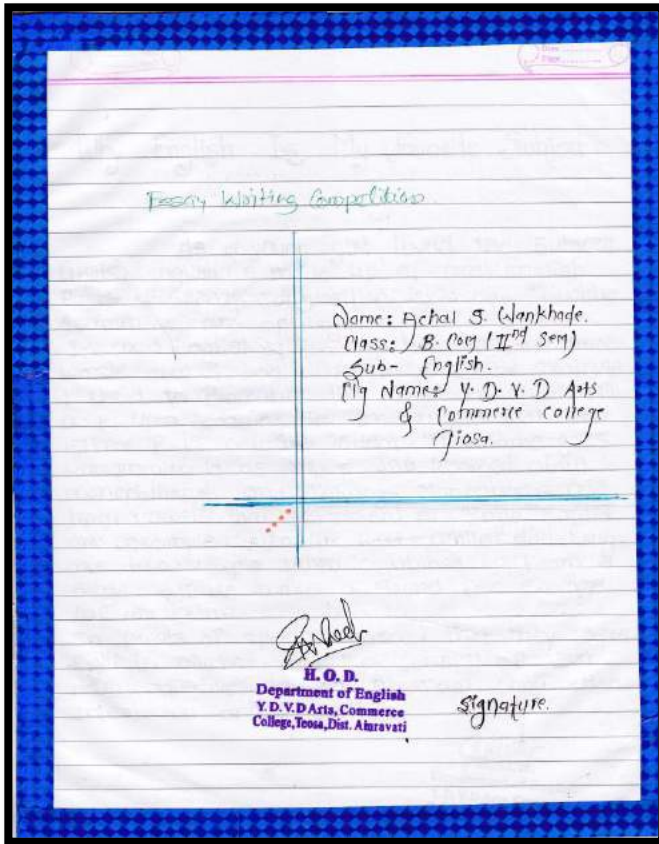 Date
Page
Essay Writing Competition.
Name: Achal S. Wankhade.
Class: B. Com (IInd Sem)
Sub- English.
Clg Name: Y. D. V. D Arts
& Commerce College
Tiosa.
H. O. D.
Department of English
Y. D. V. D Arts, Commerce
College, Teosa, Dist. Amravati
Signature.